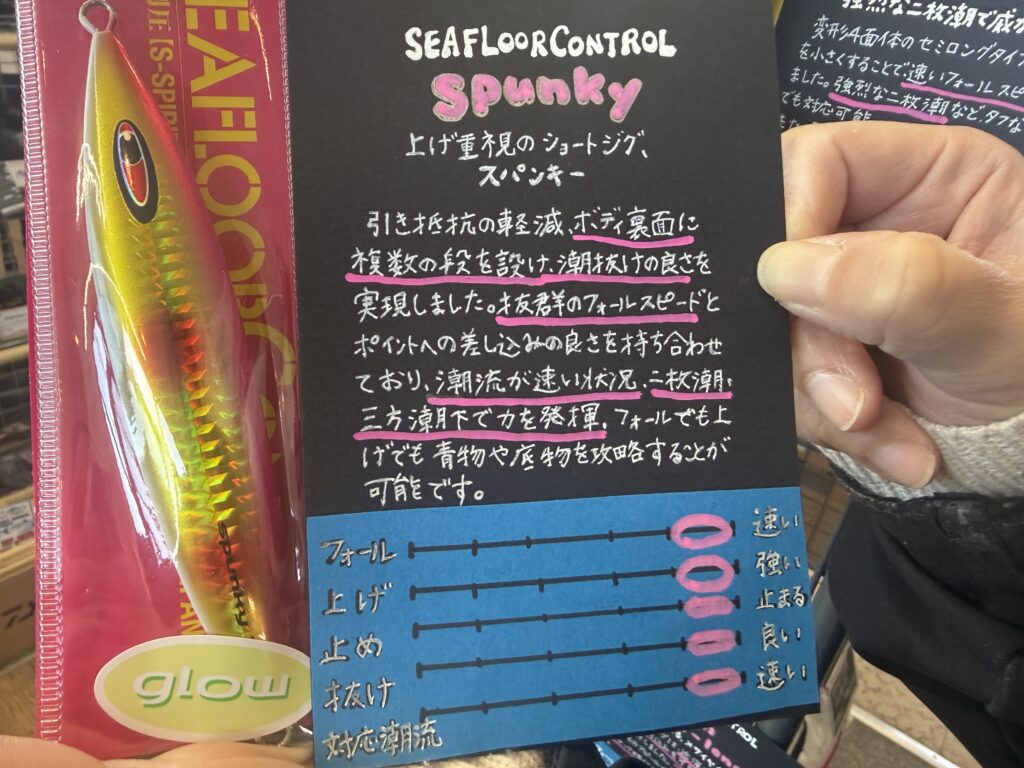 SEAFLOORCONTROL
Spunky
上げ重視のショートジグ、
スパンキー
引き抵抗の軽減、ボディ裏面に
複数の段を設け、潮抜けの良さを
実現しました。抜群のフォールスピードと
ポイントへの差し込みの良さを持ち合わせ
ており、潮流が速い状況、二枚潮、
三方潮下で力を発揮。フォールでも上
げでも青物や底物を攻略することが
可能です。
フォール 速い
上げ 強い
止め 止まる
抜け 良い
対応潮流 速い
spunky
glow
強烈な二枚潮で
変形4面体のセミロングタイプ
を小さくすることで速いフォールスピ
ました。強烈な二枚潮など、タフな
でも対応可能